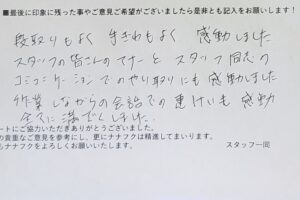 ■最後に印象に残った事やご意見ご希望がございましたら是非ともご記入をお願いします!
段取りもよく 手ぎわもよく 感動しました
スタッフの皆さんのマナーと スタッフ同志の
コミュニケーションでのやり取りにも感動しました
作業しながらの会話での受け答えも感動
全てに満ぞくしました。
ートにご協力いただきありがとうございました。
の貴重なご意見を参考にし、更にナナフクは精進してまいります。
もナナフクをよろしくお願いいたします。
スタッフ一同